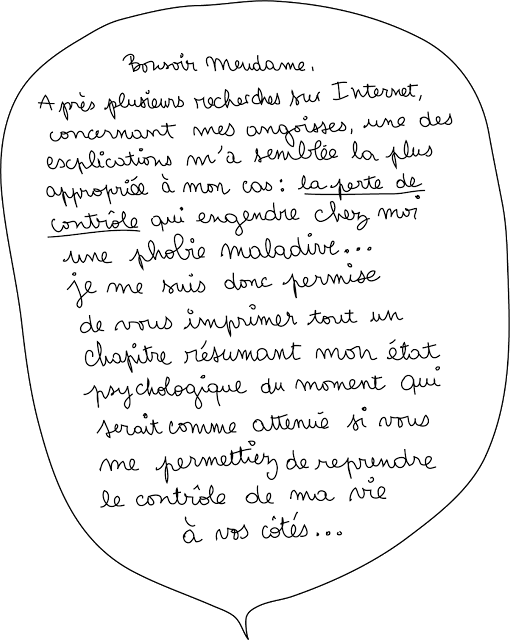 Bonsoir Meudame.
Après plusieurs recherches sur Internet,
concernant mes angoisses, une des
explications m'a semblée la plus
appropriée à mon cas : la perte de
contrôle qui engendre chez moi
une phobie maladive...
je me suis donc permise
de vous imprimer tout un
chapitre résumant mon état
psychologique du moment qui
serait comme attenué si vous
me permettiez de reprendre
le contrôle de ma vie
à vos côtés...